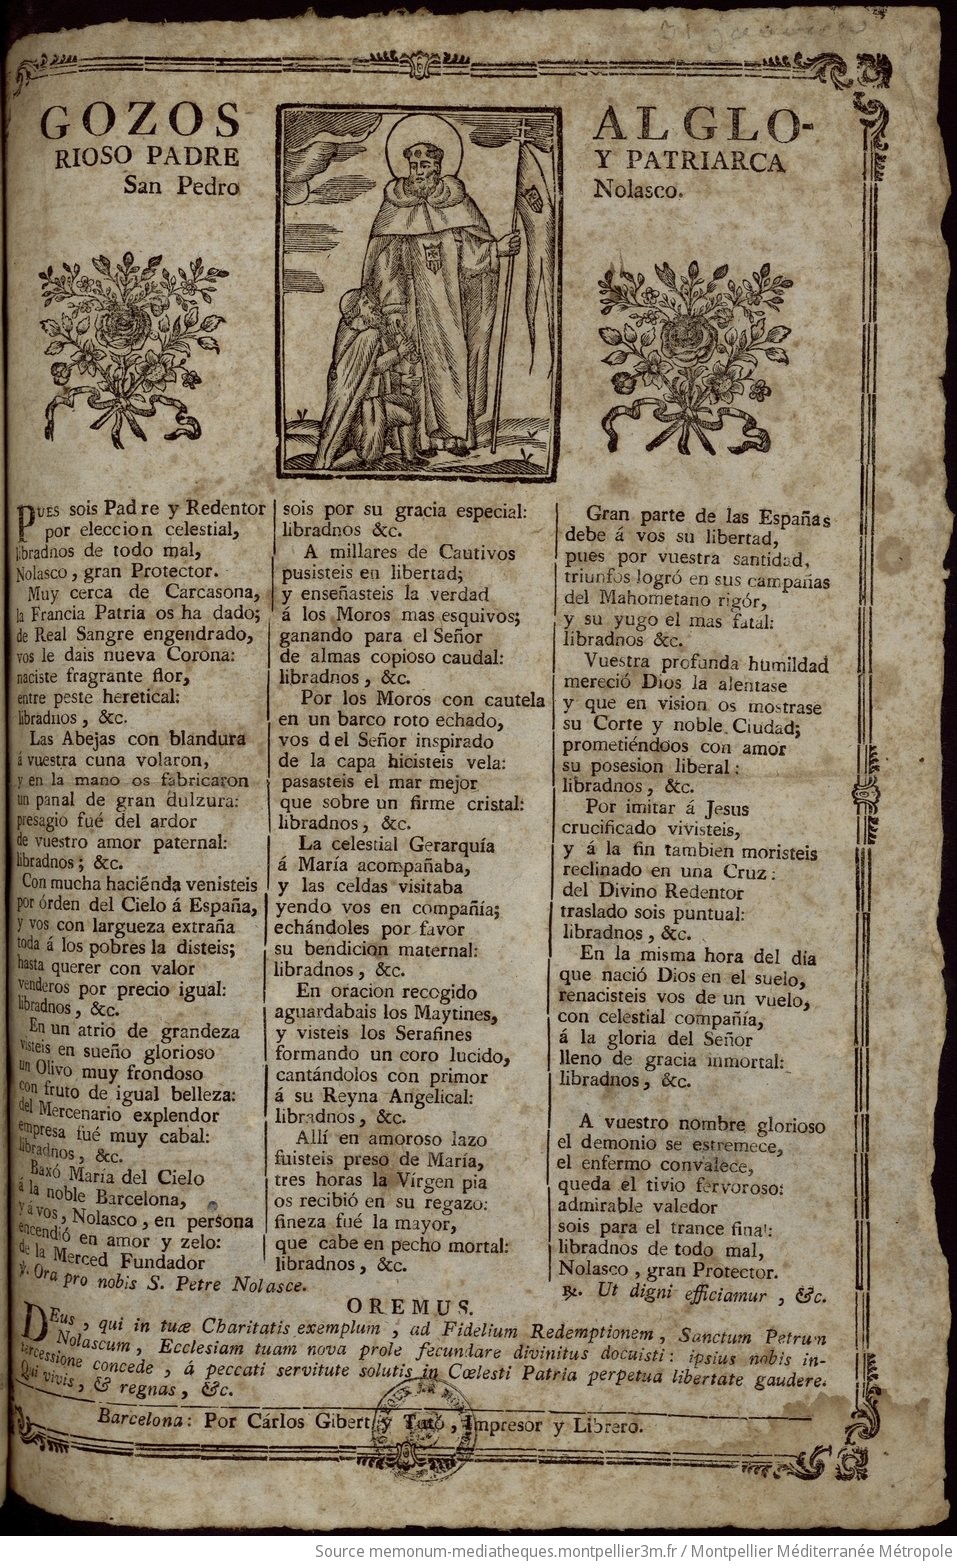 GOZOS AL GLO-
RIOSO PADRE Y PATRIARCA
San Pedro Nolasco.
PUES sois Padre y Redentor
por eleccion celestial,
libradnos de todo mal,
Nolasco, gran Protector.
Muy cerca de Carcasona,
la Francia Patria os ha dado;
de Real Sangre engendrado,
vos le dais nueva Corona:
naciste fragrante flor,
entre peste heretical:
libradnos, &c.
Las Abejas con blandura
á vuestra cuna volaron,
y en la mano os fabricaron
un panal de gran dulzura:
presagio fué del ardor
de vuestro amor paternal:
libradnos; &c.
Con mucha haciénda venisteis
por órden del Cielo á España,
y vos con largueza extraña
toda á los pobres la disteis;
hasta querer con valor
venderos por precio igual:
libradnos, &c.
En un atrio de grandeza
visteis en sueño glorioso
un Olivo muy frondoso
con fruto de igual belleza:
del Mercenario explendor
empresa fué muy cabal:
libradnos, &c.
Baxó María del Cielo
á la noble Barcelona,
y a vos, Nolasco, en persona
encendió en amor y zelo:
de la Merced Fundador
sois por su gracia especial:
libradnos &c.
A millares de Cautivos
pusisteis en libertad;
y enseñasteis la verdad
á los Moros mas esquivos;
ganando para el Señor
de almas copioso caudal:
libradnos, &c.
Por los Moros con cautela
en un barco roto echado,
vos del Señor inspirado
de la capa hicisteis vela:
pasasteis el mar mejor
que sobre un firme cristal:
libradnos, &c.
La celestial Gerarquía
á María acompañaba,
y las celdas visitaba
yendo vos en compañía;
echándoles por favor
su bendicion maternal:
libradnos, &c.
En oracion recogido
aguardabais los Maytines,
y visteis los Serafines
formando un coro lucido,
cantándolos con primor
á su Reyna Angelical:
libradnos, &c.
Allí en amoroso lazo
fuisteis preso de María,
tres horas la Vírgen pia
os recibió en su regazo:
fineza fué la mayor,
que cabe en pecho mortal:
libradnos, &c.
Gran parte de las Españas
debe á vos su libertad,
pues por vuestra santidad,
triunfos logró en sus campañas
del Mahometano rigór,
y su yugo el mas fatal:
libradnos &c.
Vuestra profunda humildad
mereció Dios la alentase
y que en vision os mostrase
su Corte y noble Ciudad;
prometiéndoos con amor
su posesion liberal:
libradnos, &c.
Por imitar á Jesus
crucificado vivisteis,
y á la fin tambien moristeis
reclinado en una Cruz:
del Divino Redentor
traslado sois puntual:
libradnos, &c.
En la misma hora del dia
que nació Dios en el suelo,
renacisteis vos de un vuelo,
con celestial compañía,
á la gloria del Señor
lleno de gracia inmortal:
libradnos, &c.
A vuestro nombre glorioso
el demonio se estremece,
el enfermo convalece,
queda el tivio fervoroso:
admirable valedor
sois para el trance final:
libradnos de todo mal,
Nolasco, gran Protector.
℣. Ora pro nobis S. Petre Nolasce.
℟. Ut digni efficiamur, &c.
OREMUS.
DEus, qui in tuæ Charitatis exemplum, ad Fidelium Redemptionem, Sanctum Petrum
Nolascum, Ecclesiam tuam nova prole fecundare divinitus docuisti: ipsius nobis in-
tercessione concede, á peccati servitute solutis in Cœlesti Patria perpetua libertate gaudere.
Qui vivis, & regnas, &c.
Barcelona: Por Cárlos Gibert y Tutó, Impresor y Librero.
Source memonum-mediatheques.montpellier3m.fr / Montpellier Méditerranée Métropole